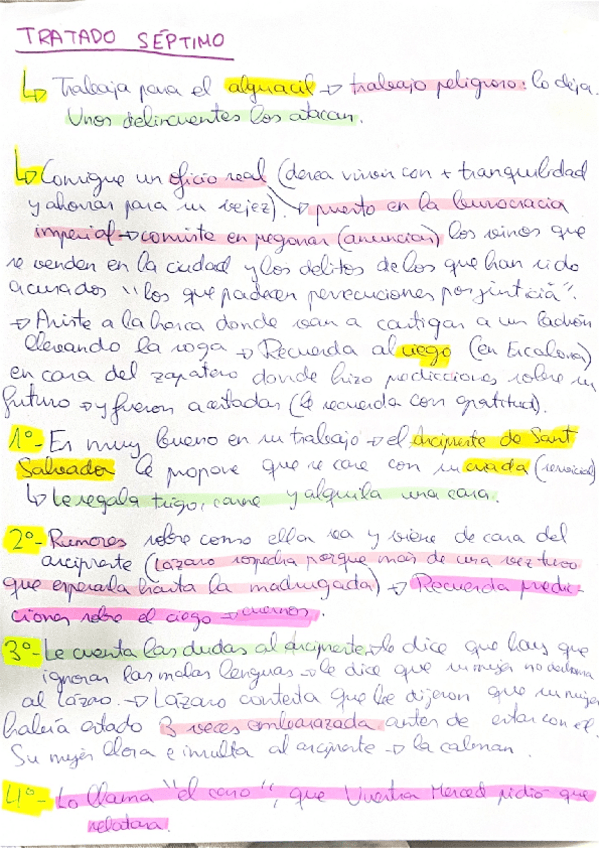 TRATADO SÉPTIMO
↳ Trabaja para el alguacil → trabajo peligroso: lo deja.
Unos delincuentes los atacan.
↳ Consigue un oficio real (desea vivir con + tranquilidad
y ahorrar para su vejez). → puesto en la burocracia
imperial → consiste en pregonar (anunciar) los vinos que
se venden en la ciudad y los delitos de los que han sido
acusados "los que padecen persecuciones por justicia".
→ Asiste a la horca donde van a castigar a un ladrón
llevando la soga → Recuerda al ciego (en Escalona)
en casa del zapatero donde hizo predicciones sobre su
futuro → y fueron acertadas (le recuerda con gratitud).
1º- Es muy bueno en su trabajo → el arcipreste de Sant
Salvador le propone que se case con su criada (servicial)
↳ Le regala trigo, carne y alquila una casa.
2º- Rumores sobre como ella va y viene de casa del
arcipreste (Lázaro sospecha porque más de una vez tuvo
que esperarla hasta la madrugada) → Recuerda predic-
ciones sobre el ciego → cuernos.
3º- Le cuenta las dudas al arcipreste, le dice que hay que
ignorar las malas lenguas → le dice que su mujer no
al Lázaro. → Lázaro contesta que le dijeron que su mujer
había estado 3 veces embarazada antes de estar con el.
Su mujer llora e insulta al arcipreste → la calman.
4º- Lo llama "el caso", que Vuestra Merced pidió que
relatara.